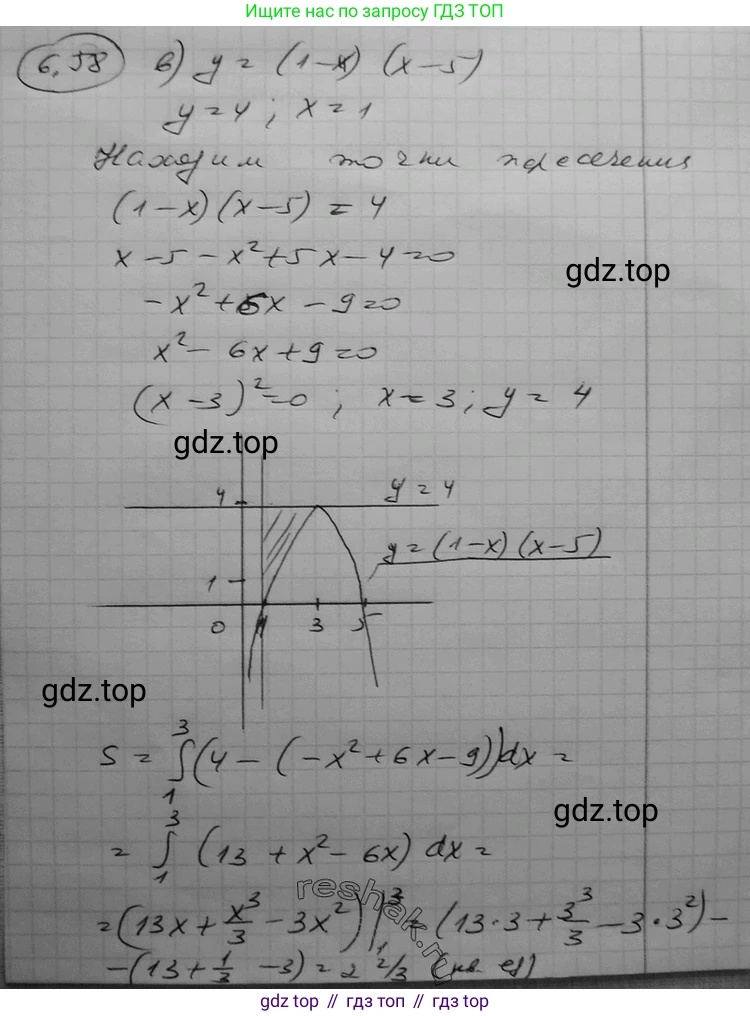 Инструкция по запросу ГДЗ ТОП
6.58 в) y = (1-x) (x-5)
y=4; x=1
Находим точки пресечения
(1-x)(x-5) = 4
x-5-x²+5x-4=0
-x²+6x-9=0
x²-6x+9=0
gdz.top
(x-3)²=0; x=3; y=4
gdz.top
4
y=4
y=(1-x)(x-5)
1
0 1 3 5
gdz.top
S = ∫₁³(4-(-x²+6x-9))dx =
gdz.top
= ∫₁³ (13+x²-6x) dx =
reshak.ru
=(13x+x³/3-3x²)|₁³=(13·3+3³/3-3·3²)-
-(13+1/3-3)=2 2/3 (кв. ед)
gdz топ // гдз топ // gdz top